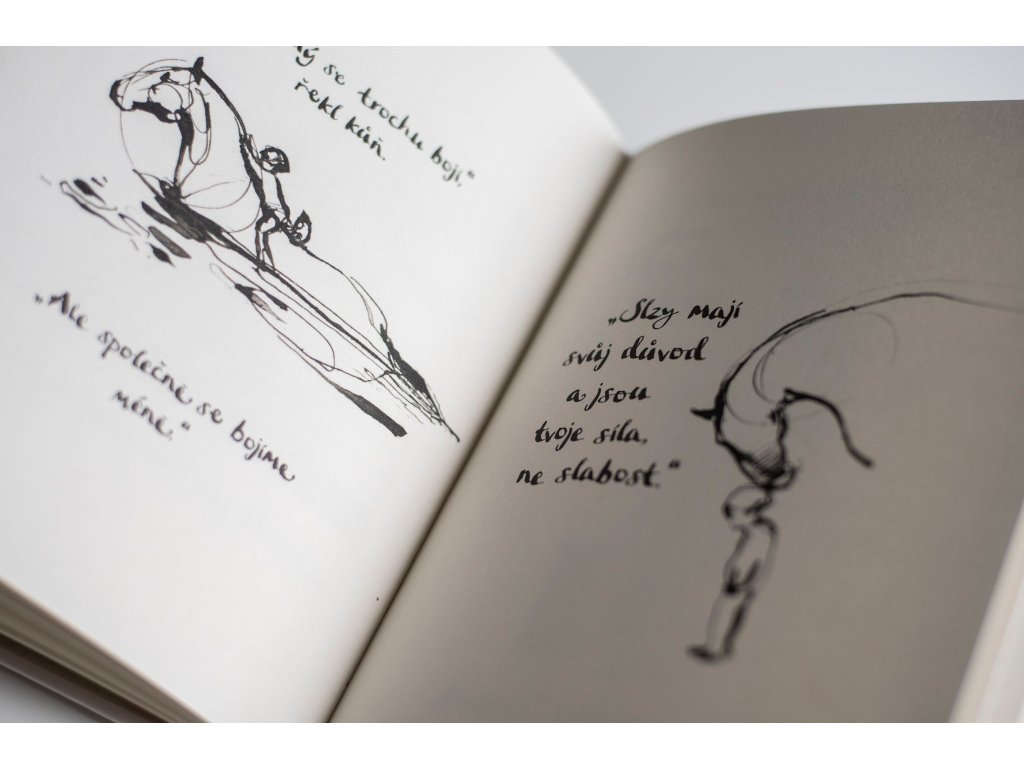 se trochu bojí,“
řekl kůň.
„Ale společně se bojíme
méně.“
„Slzy mají
svůj důvod
a jsou
tvoje síla,
ne slabost.“